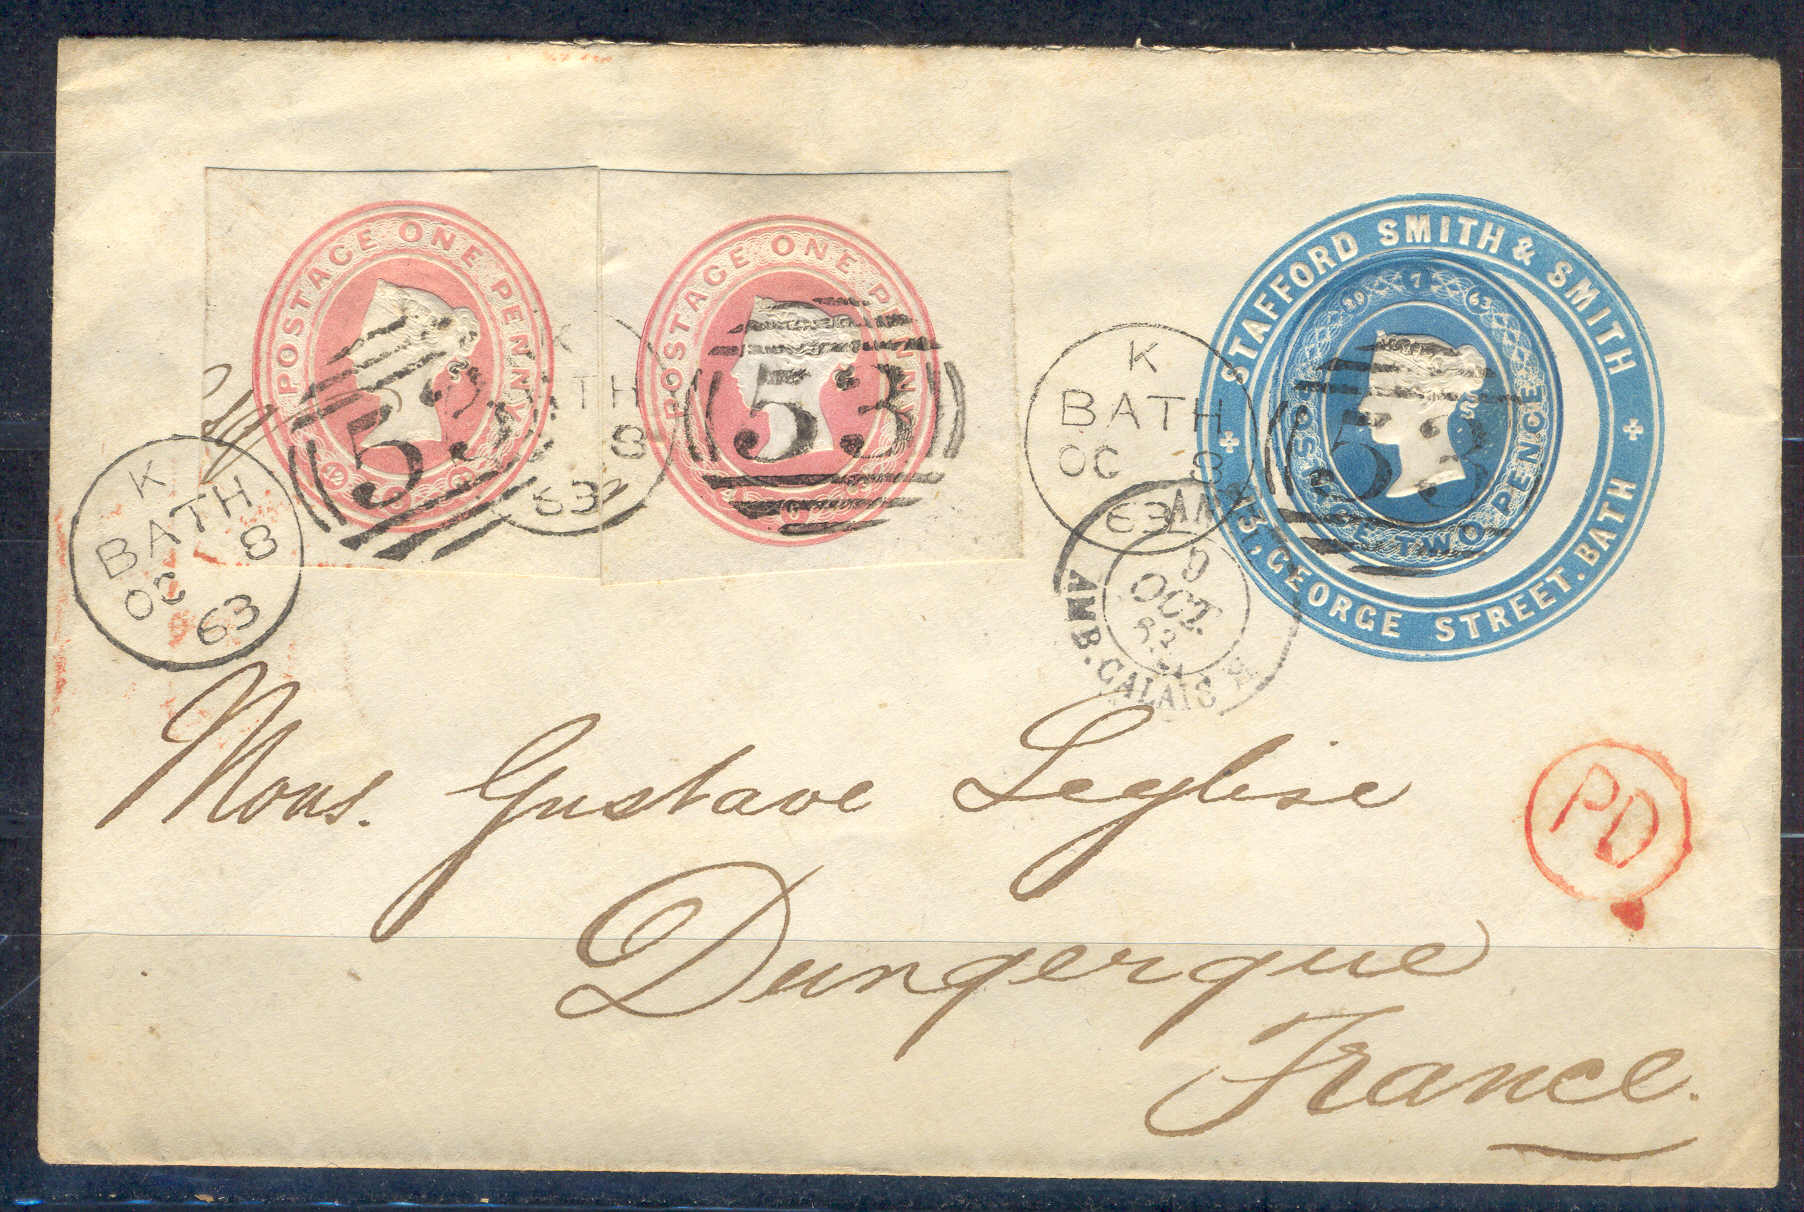 POSTAGE ONE PENNY
POSTAGE ONE PENNY
STAFFORD SMITH & SMITH
13, GEORGE STREET. BATH
20 7 63
POSTAGE TWO PENCE
53
53
53
K
BATH
OC 8
63
K
BATH
OC 8
63
K
BATH
OC 8
63
9
OCT.
63
AMB. CALAIS
PD
Mons. Gustave Leglise
Dunqerque
France.